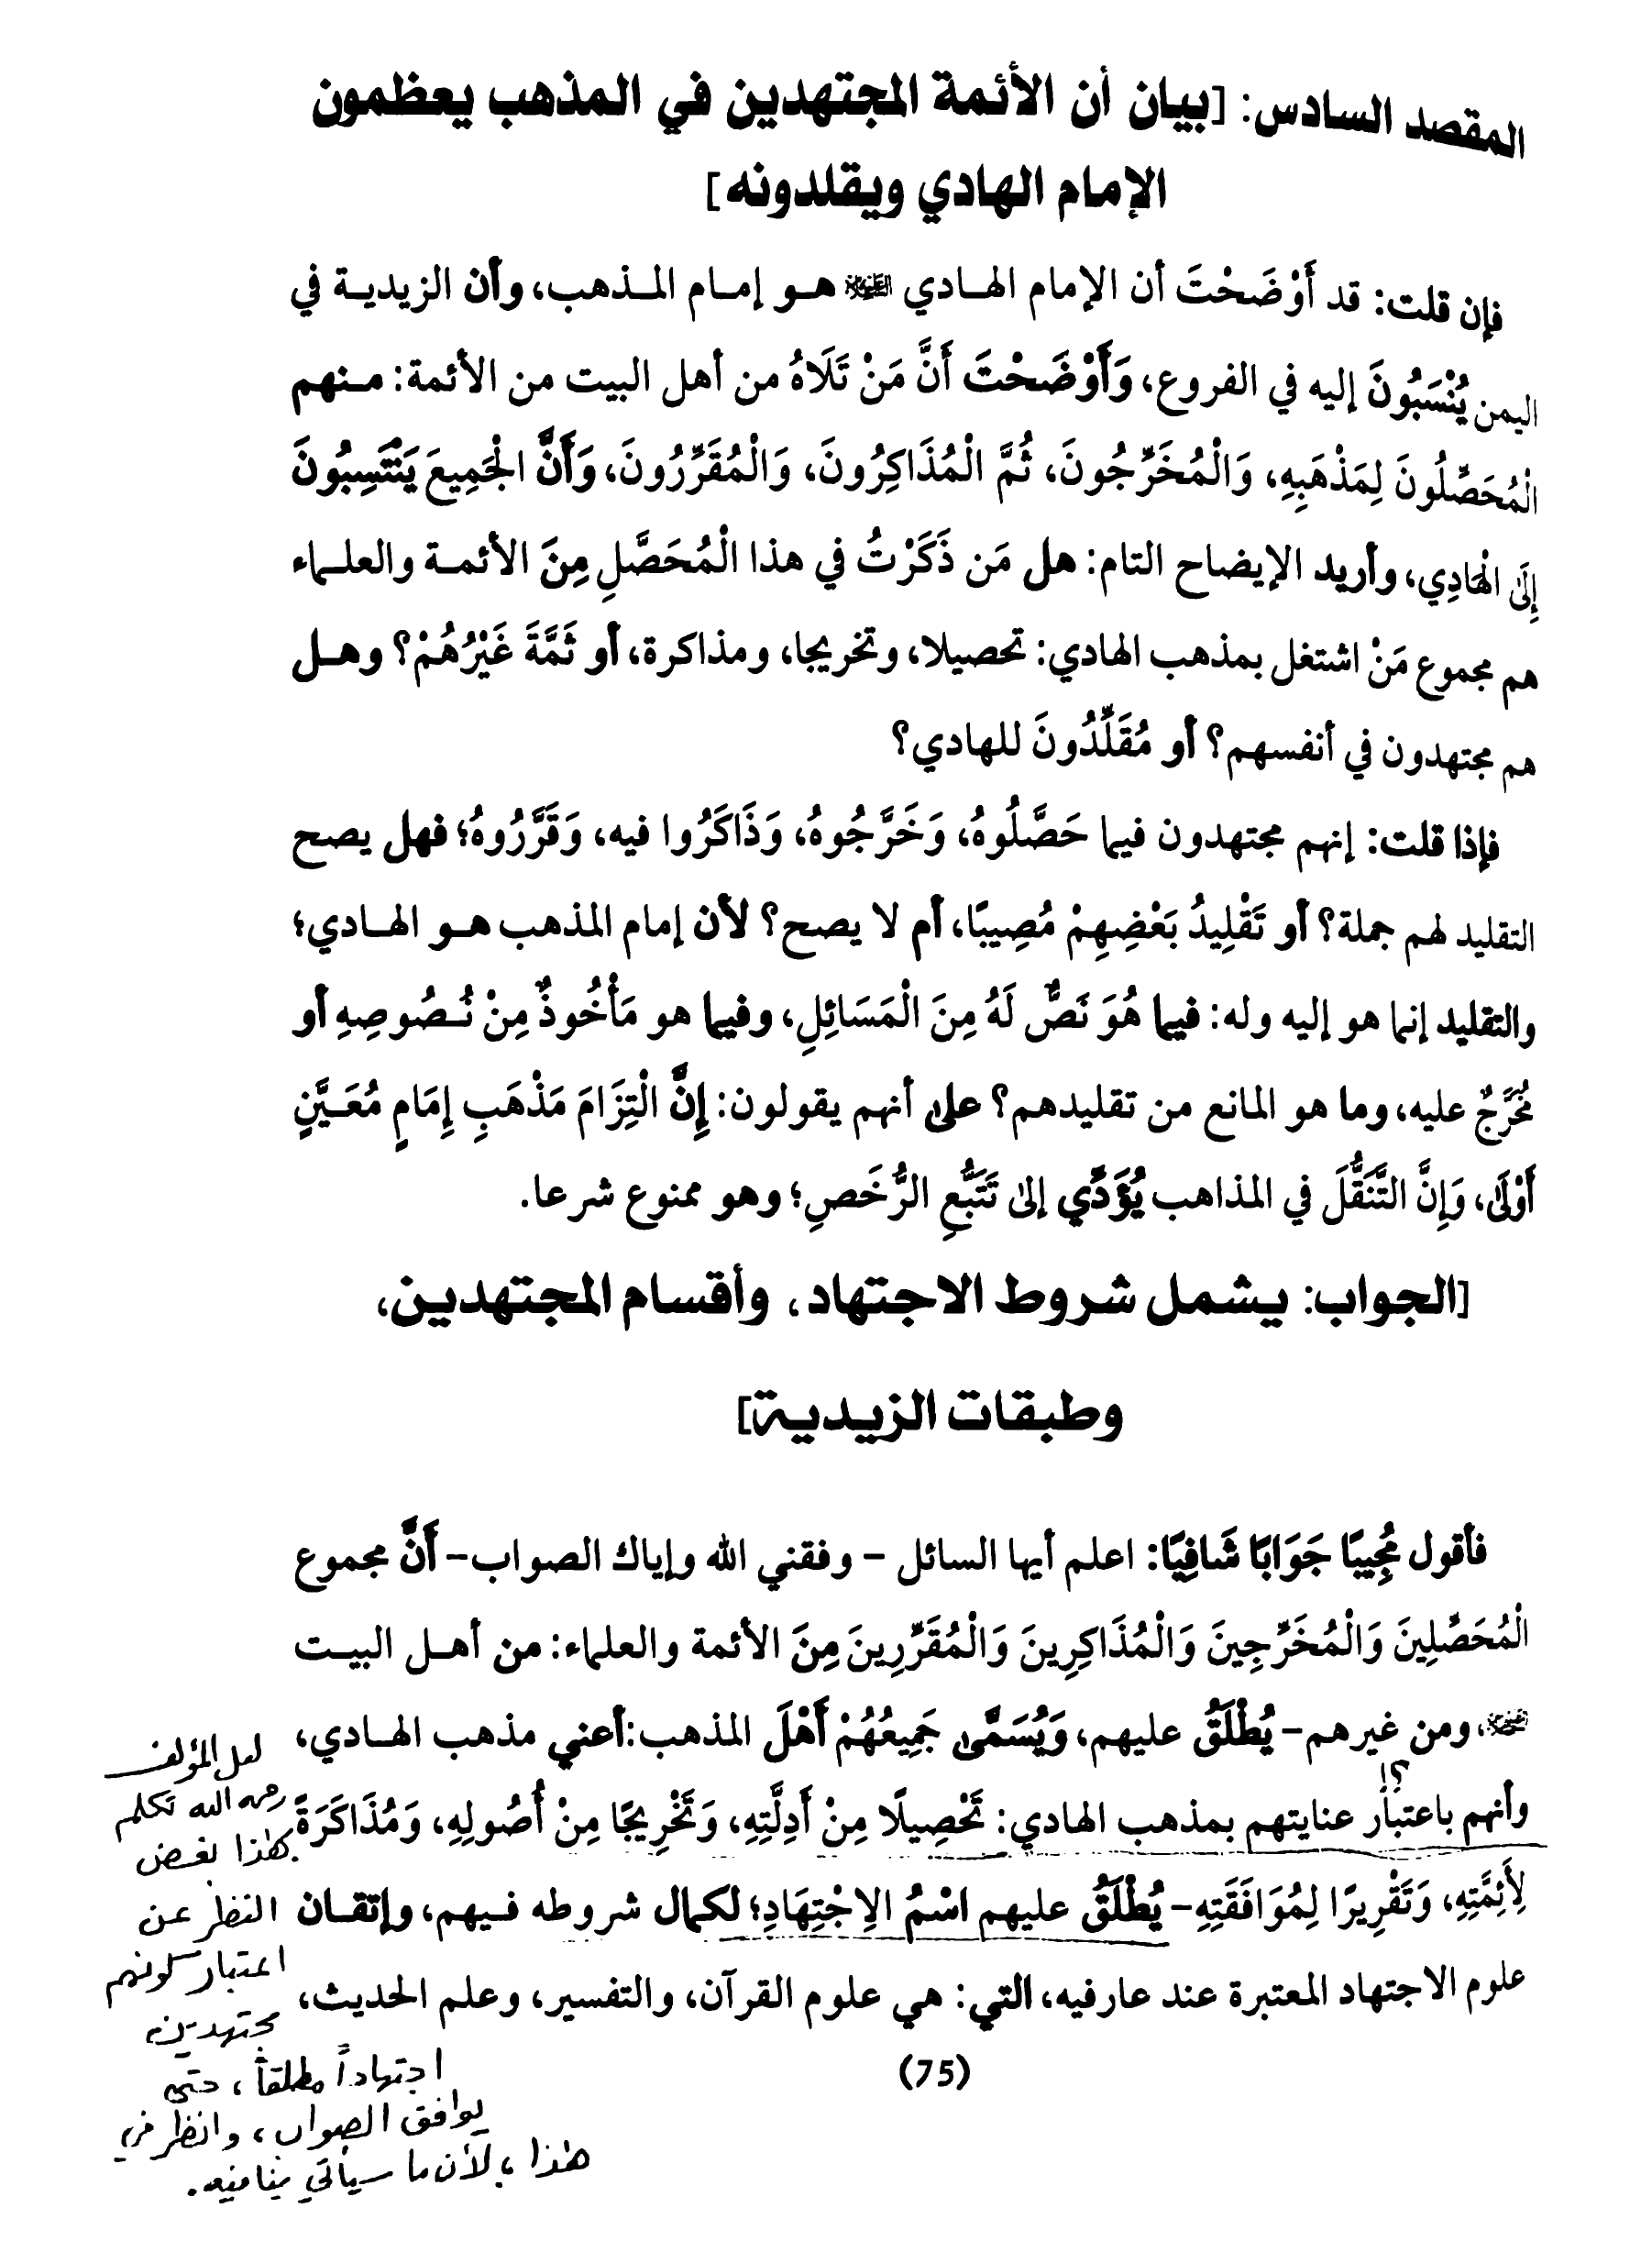 المقصد السادس: [بيان أن الأئمة المجتهدين في المذهب يعظمون
الإمام الهادي ويقلدونه]
فإن قلت: قد أَوْضَحْتَ أن الإمام الهادي # هو إمام المذهب، وأن الزيدية في
اليمن يُنْسَبُونَ إليه في الفروع، وَأَوْضَحْتَ أَنَّ مَنْ تَلَاهُ من أهل البيت من الأئمة: منهم
الْمُحَصِّلُونَ لِمَذْهَبِهِ، وَالْمُخَرِّجُونَ، ثُمَّ الْمُذَاكِرُونَ، وَالْمُقَرِّرُونَ، وَأَنَّ الْجَمِيعَ يَنْتَسِبُونَ
إِلَى الْهَادِي، وأريد الإيضاح التام: هل مَن ذَكَرْتُ في هذا الْمُحَصَّلِ مِنَ الأئمة والعلماء
هم مجموع مَنْ اشتغل بمذهب الهادي: تحصيلا، وتخريجا، ومذاكرة، أو ثَمَّةَ غَيْرُهُمْ؟ وهل
هم مجتهدون في أنفسهم؟ أو مُقَلِّدُونَ للهادي؟
فإذا قلت: إنهم مجتهدون فيما حَصَّلُوهُ، وَخَرَّجُوهُ، وَذَاكَرُوا فيه، وَقَرَّرُوهُ؛ فهل يصح
التقليد لهم جملة؟ أو تَقْلِيدُ بَعْضِهِمْ مُصِيبًا، أم لا يصح؟ لأن إمام المذهب هو الهادي؛
والتقليد إنما هو إليه وله: فيما هُوَ نَصٌّ لَهُ مِنَ الْمَسَائِلِ، وفيما هو مَأْخُوذٌ مِنْ نُصُوصِهِ أو
مُخَرَّجٌ عليه، وما هو المانع من تقليدهم؟ على أنهم يقولون: إِنَّ الْتِزَامَ مَذْهَبِ إِمَامٍ مُعَيَّنٍ
أَوْلَى، وَإِنَّ التَّنَقُّلَ في المذاهب يُؤَدِّي إلى تَتَبُّعِ الرُّخَصِ؛ وهو ممنوع شرعا.
[الجواب: يشمل شروط الاجتهاد، وأقسام المجتهدين،
وطبقات الزيدية]
فأقول مُجِيبًا جَوَابًا شَافِيًا: اعلم أيها السائل - وفقني الله وإياك الصواب- أَنَّ مجموع
الْمُحَصِّلِينَ وَالْمُخَرِّجِينَ وَالْمُذَاكِرِينَ وَالْمُقَرِّرِينَ مِنَ الأئمة والعلماء: من أهل البيت
، ومن غيرهم- يُطْلَقُ عليهم، وَيُسَمَّى جَمِيعُهُمْ أَهْلَ المذهب:أعني مذهب الهادي،
؟!
وأنهم باعتبار عنايتهم بمذهب الهادي: تَحْصِيلًا مِنْ أَدِلَّتِهِ، وَتَخْرِيجًا مِنْ أُصُولِهِ، وَمُذَاكَرَةً
لِأَئِمَّتِهِ، وَتَقْرِيرًا لِمُوَافَقَتِهِ- يُطْلَقُ عليهم اسْمُ الِاجْتِهَادِ؛ لكمال شروطه فيهم، وإتقان
علوم الاجتهاد المعتبرة عند عارفيه، التي: هي علوم القرآن، والتفسير، وعلم الحديث،
لعل المؤلف
رحمه الله تكلم
هٰذا بغض
النظر عن
اعتبار كونهم
مجتهدين
اجتهاداً مطلقاً، حتى
يوافق الصواب، وانظر في
هٰذا، لأن ما سيأتي ينافيه.
(75)